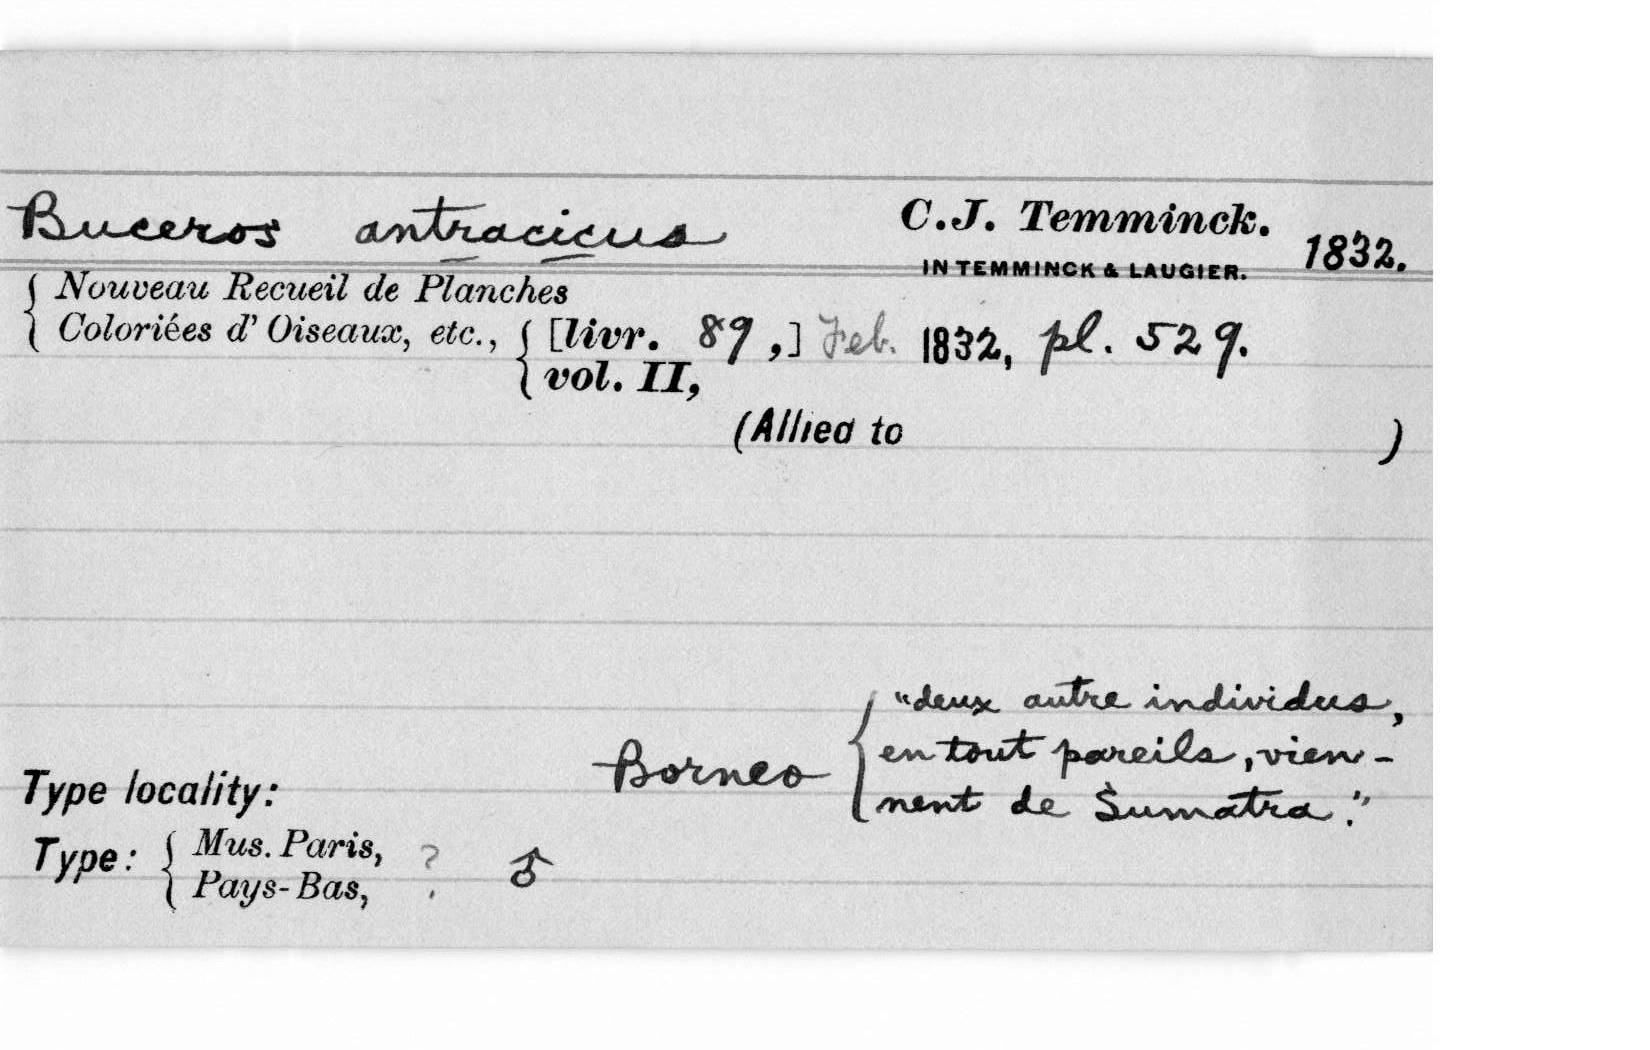 Buceros antracicus C.J. Temminck. 1832.
IN TEMMINCK & LAUGIER.
{ Nouveau Recueil de Planches
Coloriées d' Oiseaux, etc., { [livr. 89,] Feb. 1832, pl. 529.
vol. II,
(Allied to )
"deux autre individus,
Borneo { en tout pareils, vien-
Type locality: nent de Sumatra."
Type: { Mus. Paris, ? ♂
Pays-Bas,